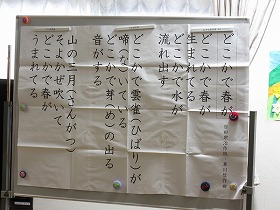 どこかで春が
どこかで春が
生まれてる
どこかで水が
流れ出す
どこかで雲雀(ひばり)が
啼(な)いている
どこかで芽(め)の出る
音がする
山の三月(さんがつ)
そよかぜ吹いて
どこかで春が
うまれてる